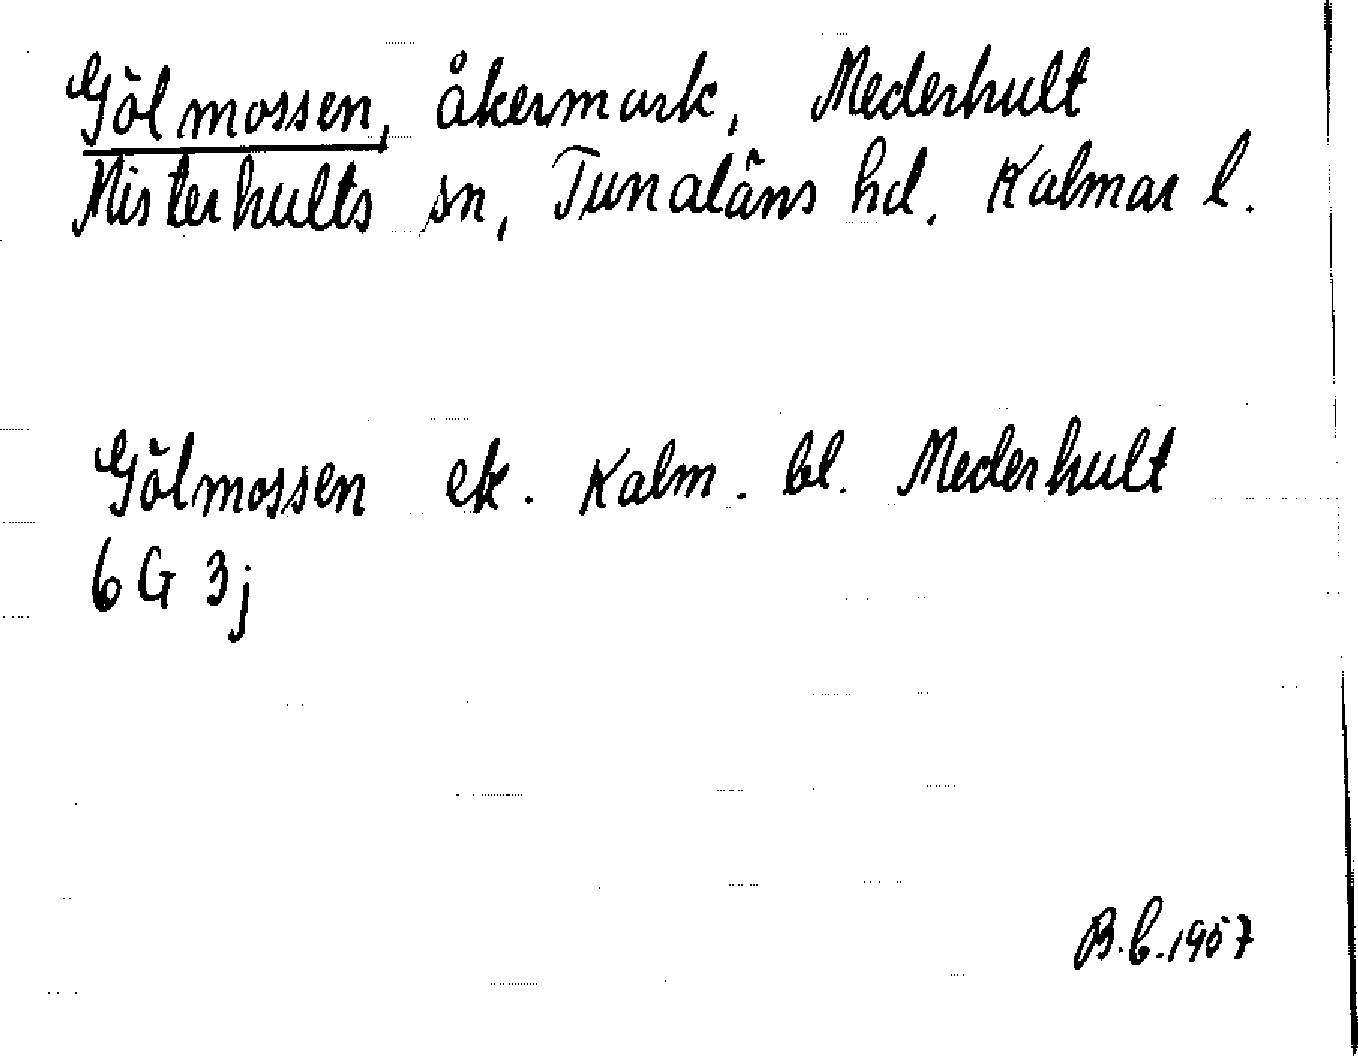 Gölmossen, åkermark, Mederhult
Misterhults sn, Tunaläns hd. Kalmar l.
Gölmossen ek. Kalm. bl. Mederhult
6 G 3j
B.b.1957